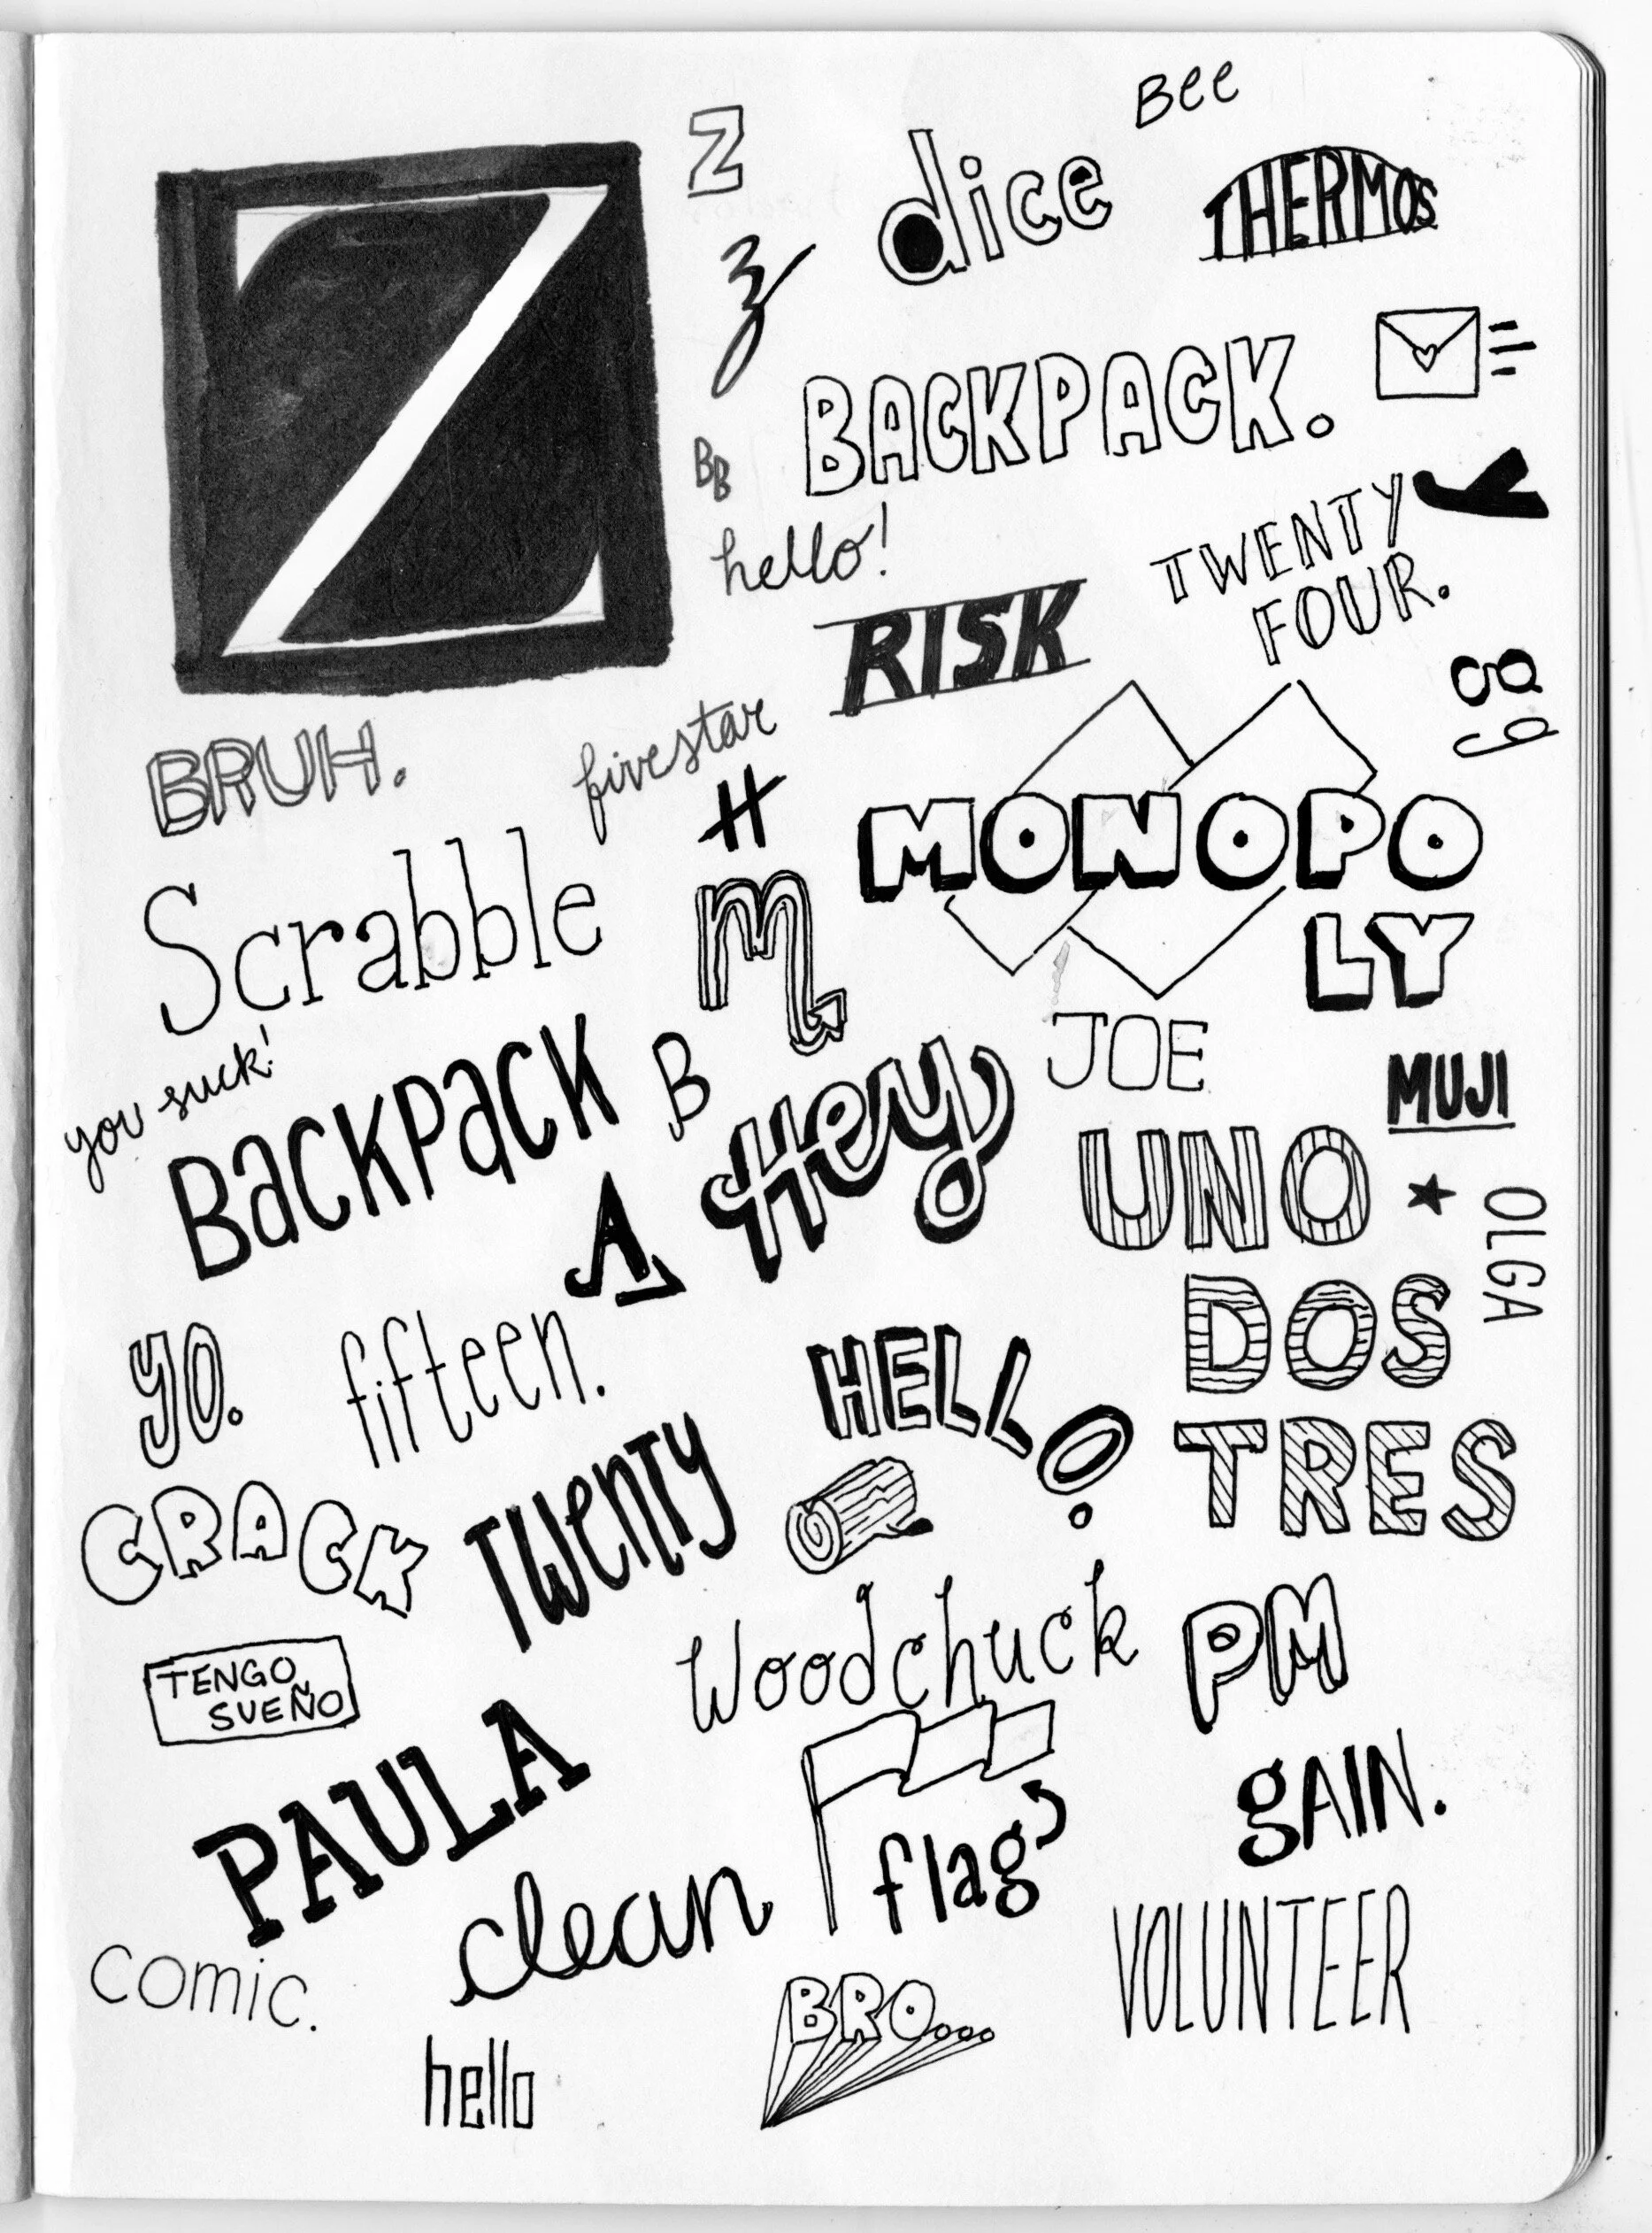 Bee
Z
Z
dice
THERMOS
z
BACKPACK.
BB
y
hello!
TWENTY
FOUR.
RISK
g
g
BRUH.
fivestar
H
MONOPO
LY
Scrabble
m
JOE
you suck!
BACKPACK
B
Hey
MUJI
UNO
OLGA
A
DOS
yo.
fifteen.
HELLO
TRES
CRACK
TWENTY
Woodchuck
PM
TENGO
SUEÑO
PAULA
gAIN.
flag
clean
VOLUNTEER
comic.
BRO...
hello